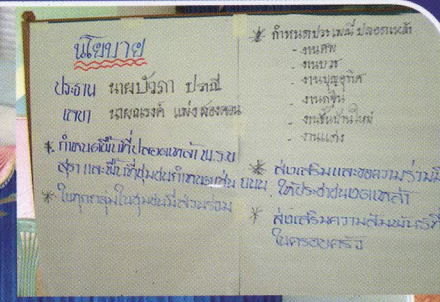 นโยบาย
ประธาน นายบัวภา
เลขา นายณรงค์
* กำหนดพื้นที่ปลอดเหล้า พ.ร.บ
สุรา และพื้นที่ชุมชน ถนน
* ให้ทุกกลุ่มในชุมชนมีส่วนร่วม
* กำหนดประเพณีปลอดเหล้า
- งานศพ
- งานบวช
- งานบุญอุทิศ
- งานกฐิน
- งานขึ้นบ้านใหม่
- งานแต่ง
* ส่งเสริมและขอความร่วมมื
ให้ประชาชนงดเหล้า
* ส่งเสริมความสัมพันธ์ที่
ในครอบครัว